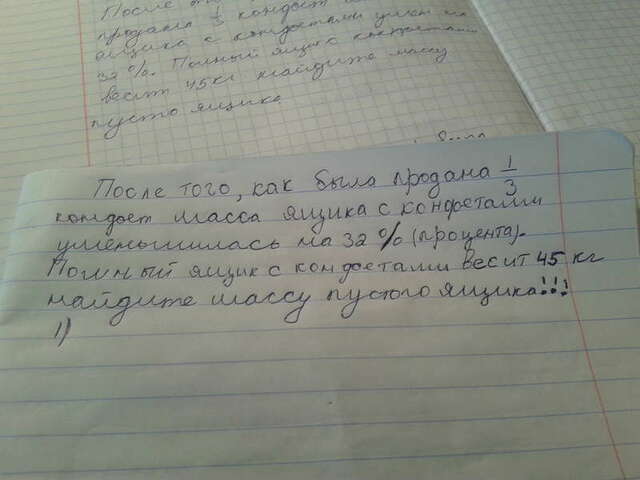 После
продана 1/3 конфет
ящика с конфетами умен на
32%. Полный ящик с конфетами
весит 45кг найдите массу
пусто ящика
была
После того, как была продана 1/3
конфет масса ящика с конфетами
уменьшилась на 32% (процента).
Полный ящик с конфетами весит 45 кг
найдите массу пустого ящика!!!
1)